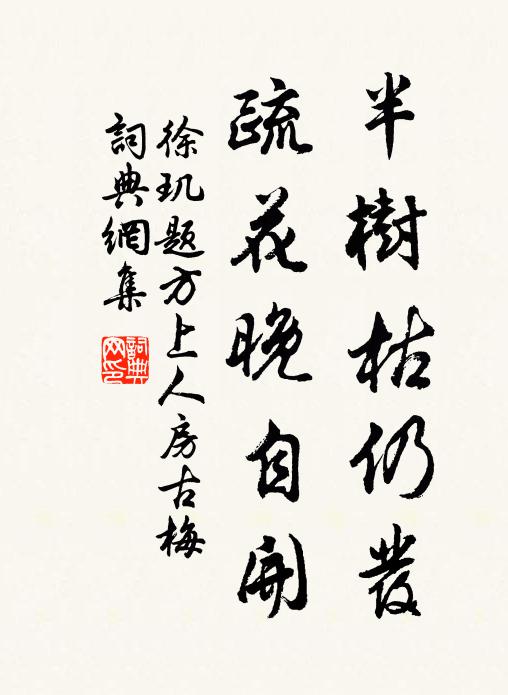 半樹枯仍發
疏花晚自開
徐玑题方上人房古梅
詞典網集
詞典网印